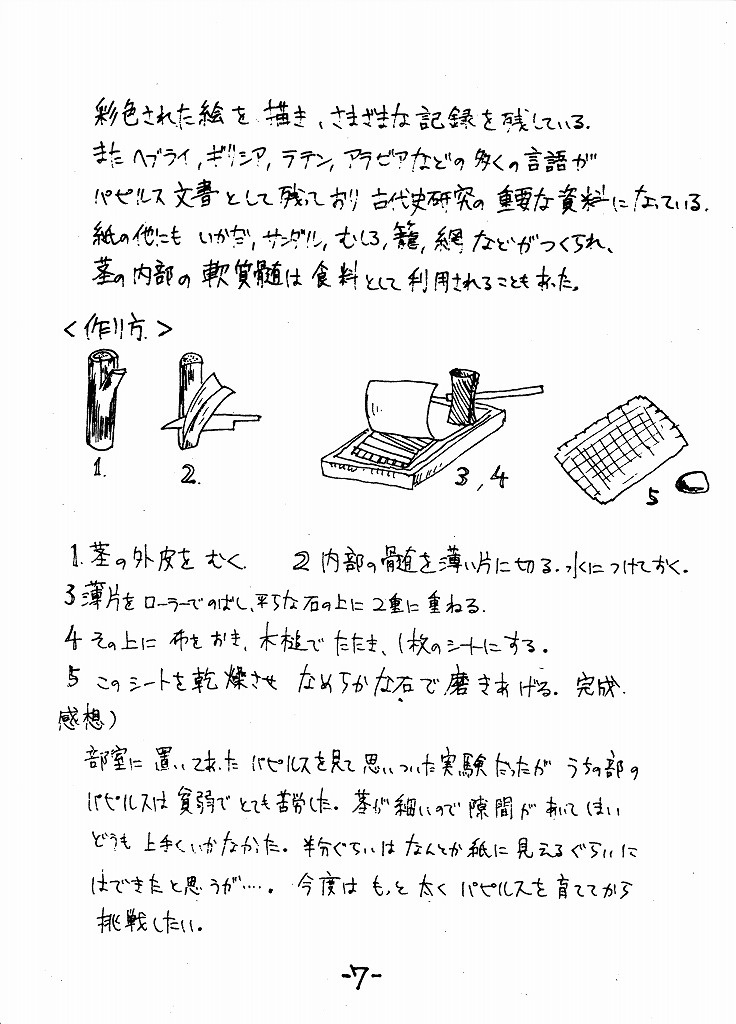 彩色された絵を描き、さまざまな記録を残している.
また ヘブライ, ギリシア, ラテン, アラビアなどの多くの言語が
パピルス文書として残っており 古代史研究の 重要な資料になっている.
紙の他にも いかだ, サンダル, むしろ, 籠, 網 などがつくられ、
茎の内部の 軟質髄は 食料として利用されることもあった。
<作り方.>
1.
2.
3, 4
5
1. 茎の外皮を むく. 2 内部の髄を薄い片に切る. 水につけておく.
3 薄片を ローラーでのばし、平らな石の上に 2重に重ねる.
4 その上に 布をおき、木槌で たたき、1枚のシートにする.
5 このシートを乾燥させ なめらかな石で磨きあげる. 完成.
感想)
部室に 置いてあった パピルスを見て 思いついた実験だったが うちの部の
パピルスは貧弱でとても苦労した。茎が細いので隙間が あいてしまい
どうも 上手くいかなかった。半分ぐらいは なんとか紙に見えるぐらいに
はできたと思うが…. 。 今度は もっと太く パピルスを育ててから
挑戦したい。
-7-